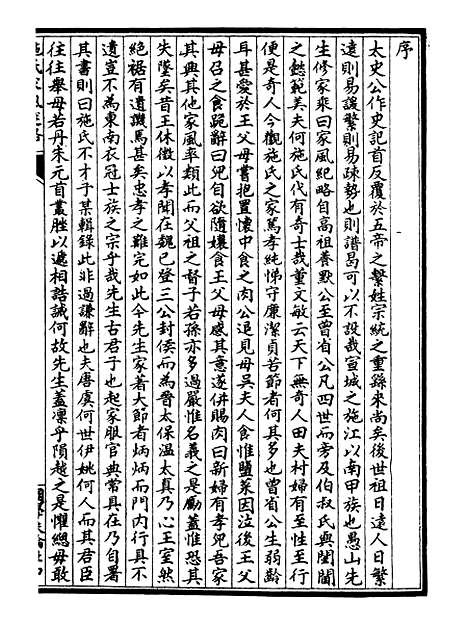 序
太史公作史記首反覆於五帝之繫姓宗統之重繇來尚矣後世祖日遠人日繁
遠則易諼繁則易疎勢也則譜曷可以不設哉宣城之施江以南甲族也愚山先
生修家乘曰家風紀略自高祖養默公至曾省公凡四世而旁及伯叔氏與閨閫
之懿範美夫何施氏代有奇士哉董文敏云天下無奇人田夫村婦有至性至行
便是奇人今觀施氏之家篤孝純悌守廉潔貞苦節者何其多也曾省公生弱齡
耳甚愛於王父母嘗抱置懷中食之肉公追見母吳夫人食惟鹽菜因泣後王父
母召之食跪辭曰兒自欲隨孃食王父母感其意遂併賜肉曰新婦有孝兒吾家
其興其他家風率類此而父祖之督子若孫亦多過嚴惟名義之是勵蓋惟恐其
失墜矣昔王休徵以孝聞在魏已登三公封侯而為晉太保溫太真乃心王室然
絕裾有遺譏焉甚矣忠孝之難完如此今先生家著大節者炳炳而門内行具不
遺豈不為東南衣冠士族之宗乎哉先生古君子也起家服官典常具在乃自署
其書則曰施氏不才子某輯錄此非過謙辭也夫唐虞何世伊姚何人而其君臣
往往舉毋若丹朱元首叢脞以遞相誥誡何故先生蓋凜乎隕越之是懼總毋敢